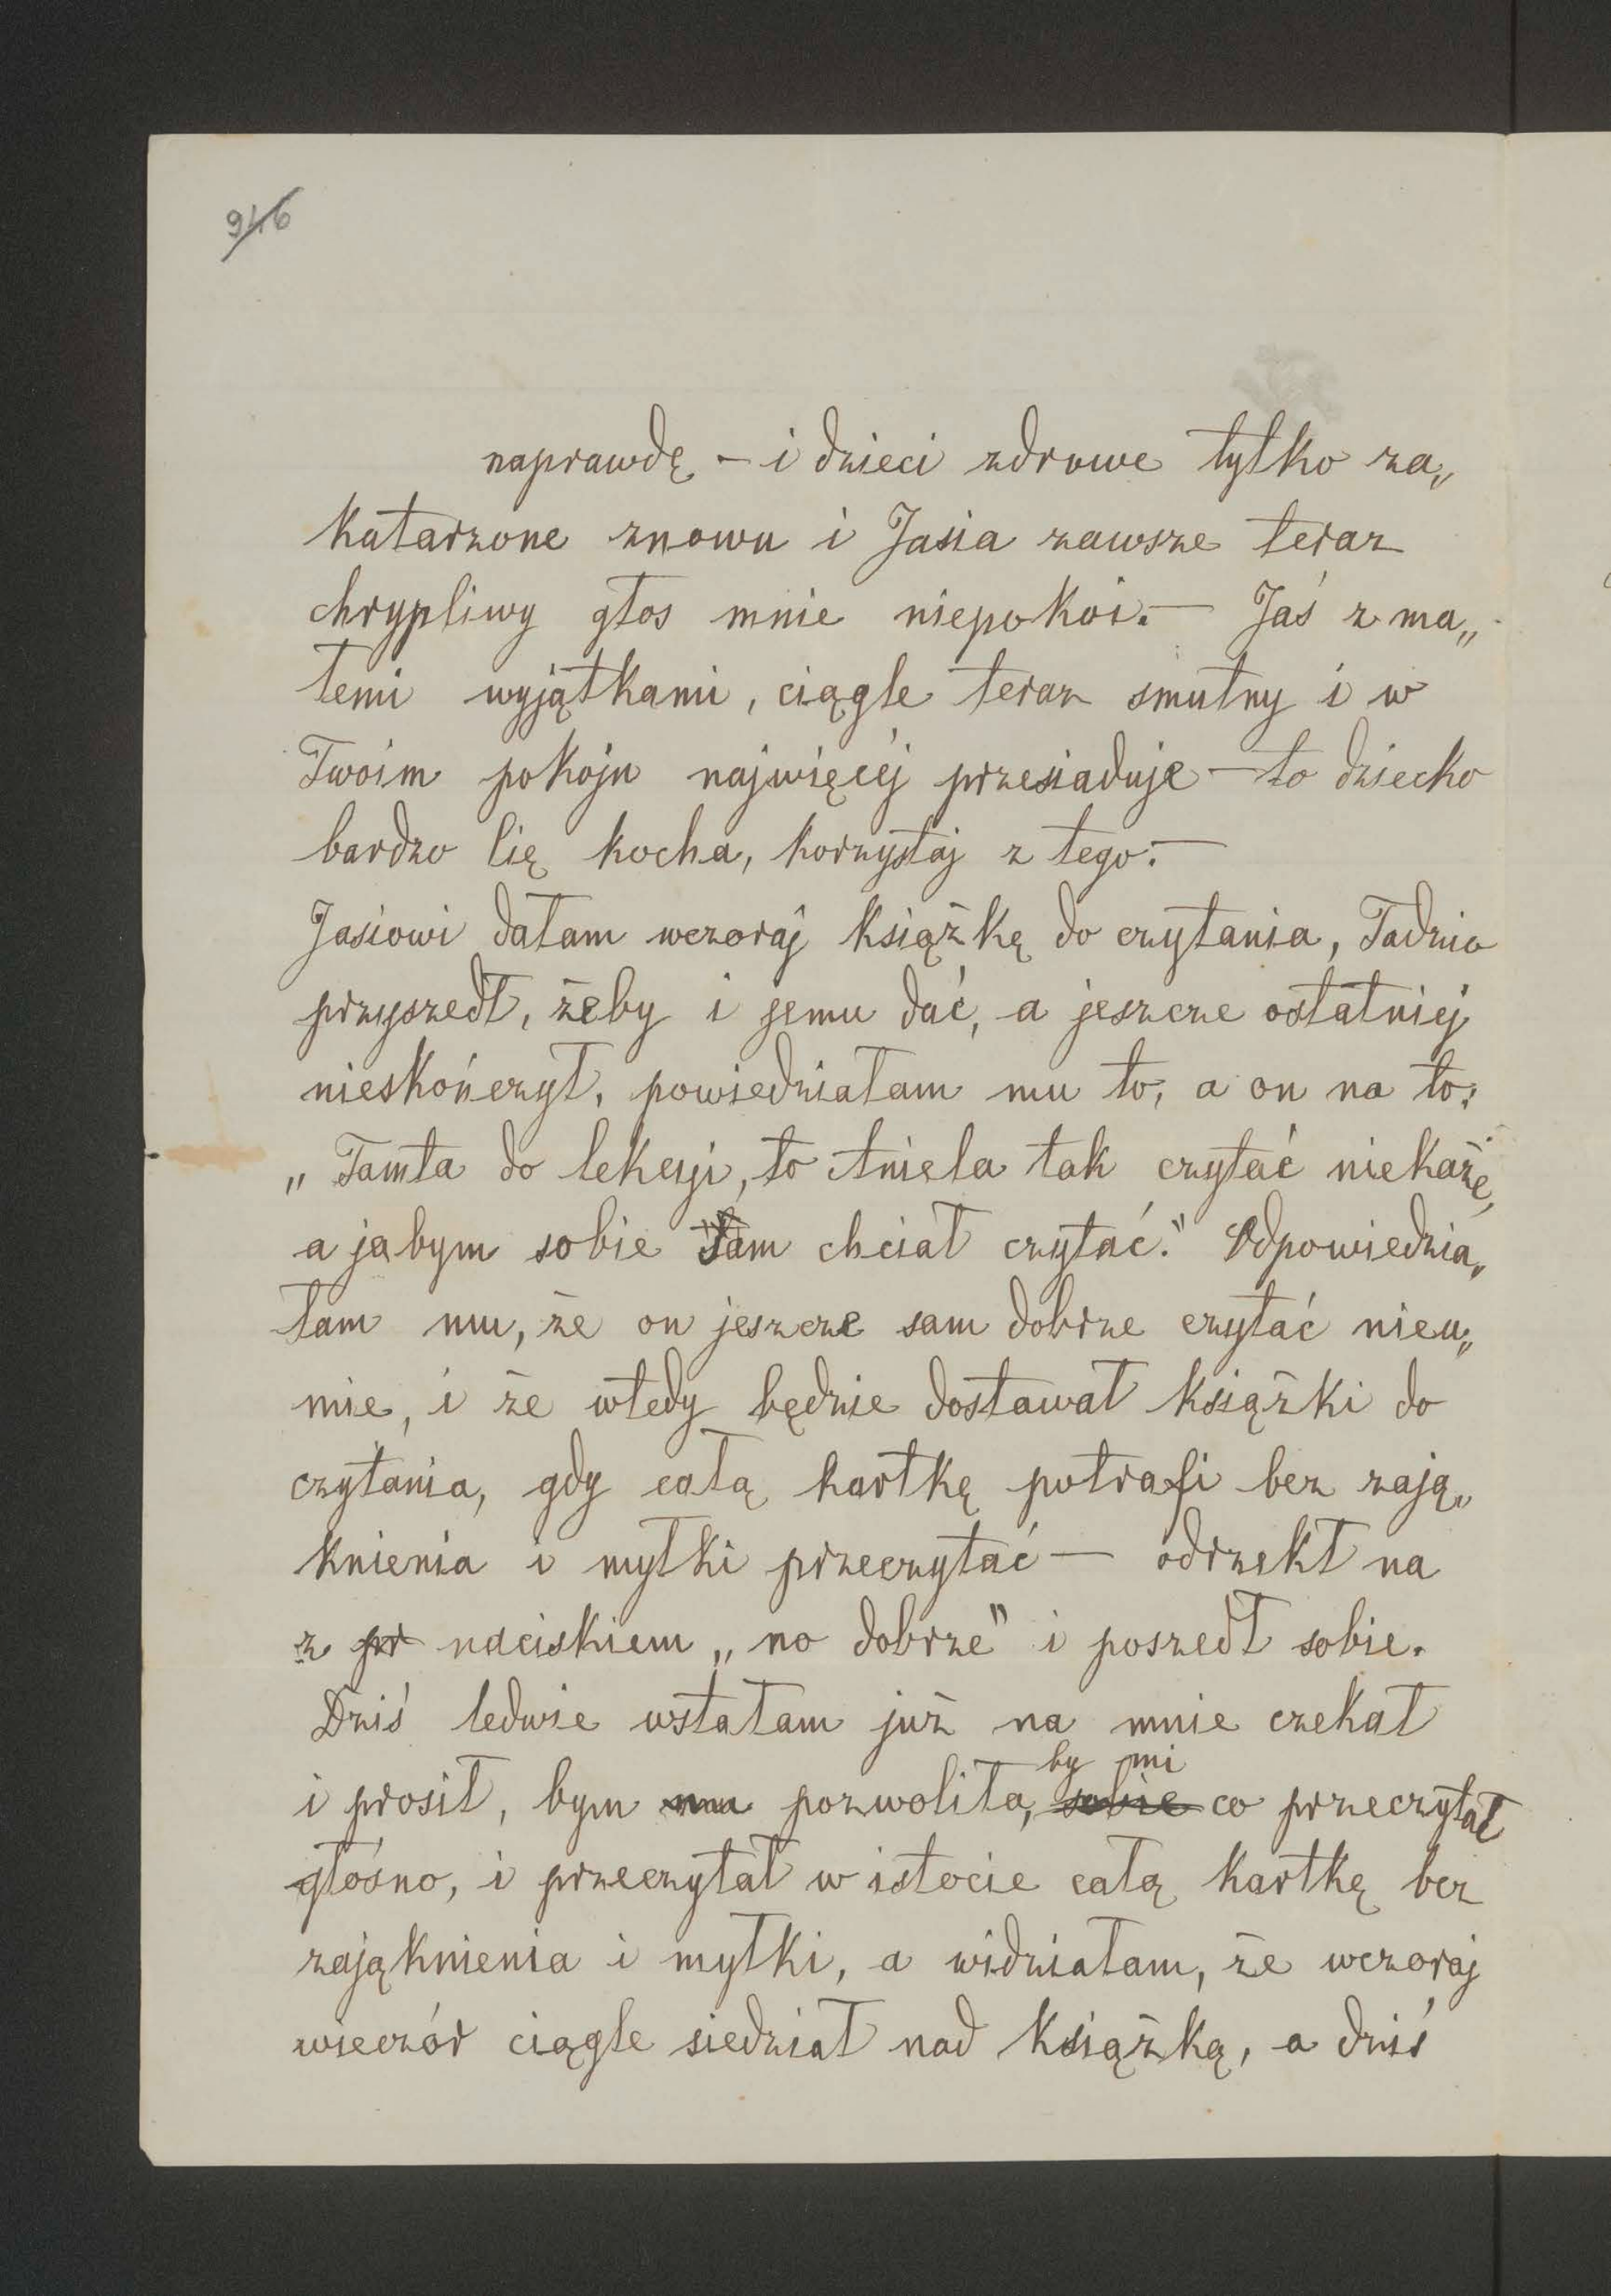 946
naprawdę – i dzieci zdrowe tylko za„
katarzone znowu i Jasia zawsze teraz
chrypliwy głos mnie niepokoi. – Jaś z ma„
łemi wyjątkami, ciągle teraz smutny i w
Twoim pokoju najwięcéj przesiaduje – to dziecko
bardzo Cię kocha, korzystaj z tego. –
Jasiowi dałam wczoraj książkę do czytania, Tadzio
przyszedł, żeby i jemu dać, a jeszcze ostatniéj
nieskończył, powiedziałam mu to, a on na to:
„Tamta do lekcyi, to Aniela tak czytać niekaże,
a jabym sobie sam chciał czytać." Odpowiedzia„
łam mu, że on jeszcze sam dobrze czytać nieu„
mie, i że wtedy będzie dostawał książki do
czytania, gdy całą kartkę potrafi bez zają„
knienia i myłki przeczytać – odrzekł na
z pr naciskiem „no dobrze" i poszedł sobie.
Dziś ledwie wstałam już na mnie czekał
by mi
i prosił, bym mu pozwoliła, sobie co przeczytać
głośno, i przeczytał w istocie całą kartkę bez
zająknienia i myłki, a widziałam, że wczoraj
wieczór ciągle siedział nad książką, a dziś